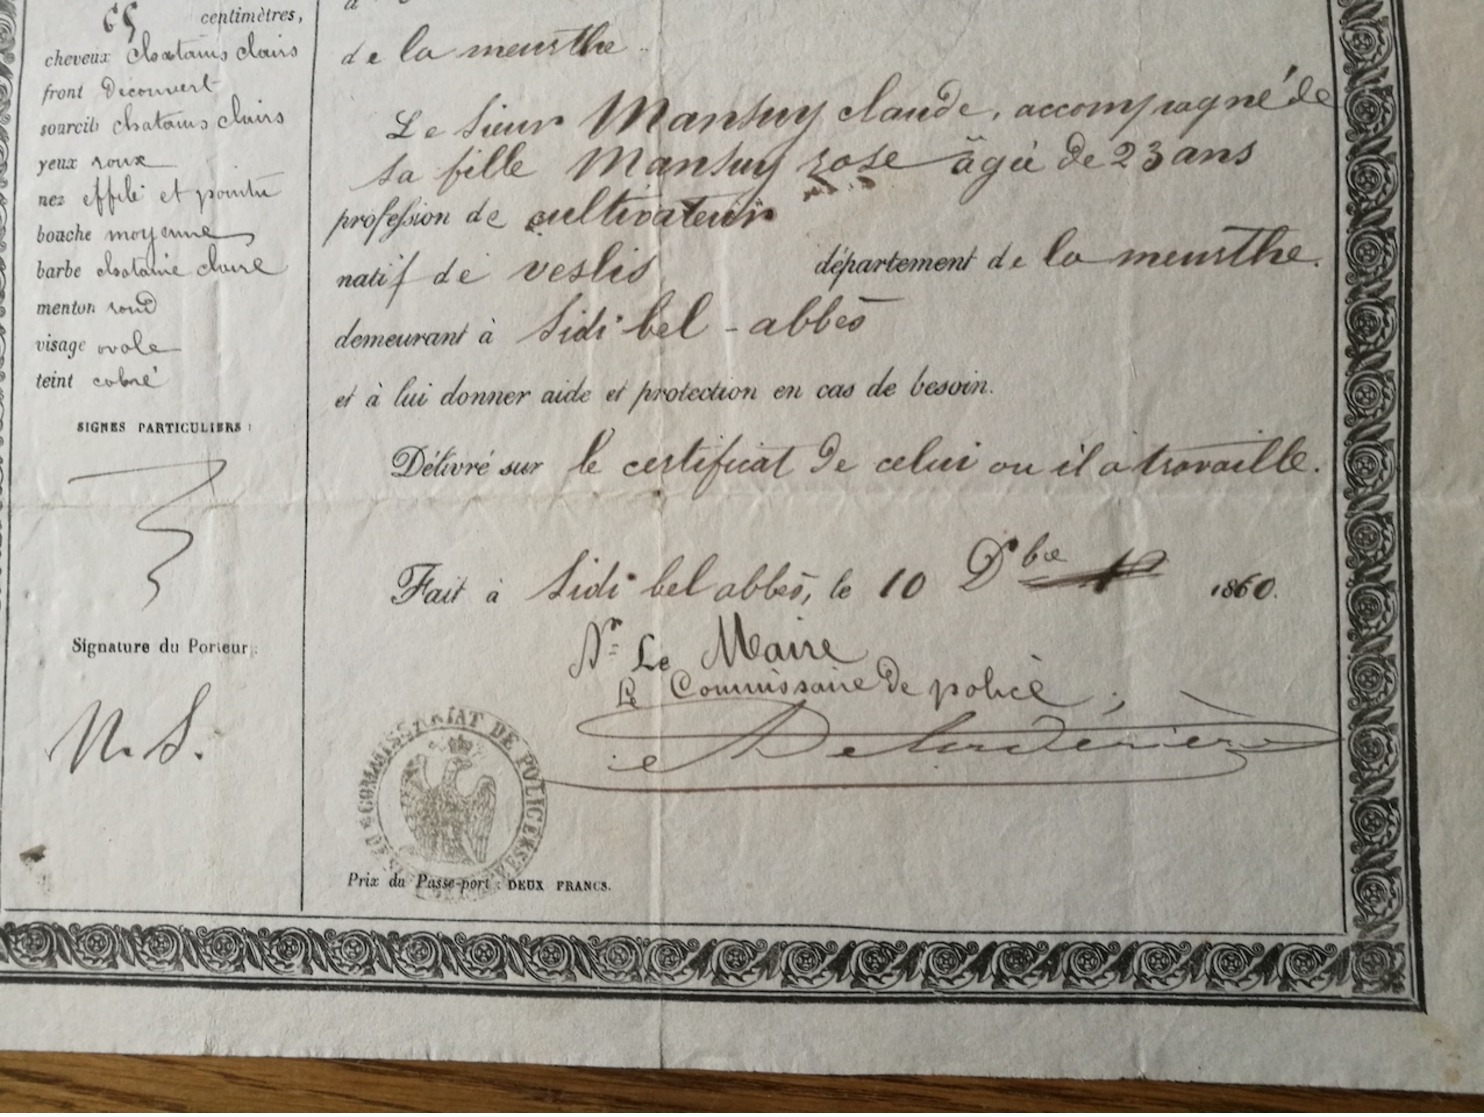 65 centimètres,
cheveux chatains clairs
front Découvert
sourcils chatains clairs
yeux roux
nez effilé et pointu
bouche moyenne
barbe chataine claire
menton rond
visage ovale
teint cobré
SIGNES PARTICULIERS :
Signature du Porteur :
N. S.
de la meurthe
Le sieur Mansuy claude, accompagné de
sa fille Mansuy rose âgée de 23 ans
profession de cultivateur
natif de veslis département de la meurthe.
demeurant à Sidi bel-abbès
et à lui donner aide et protection en cas de besoin.
Délivré sur le certificat de celui ou il a travaille.
Fait à Sidi bel abbès, le 10 Dbre 1860.
Le Maire
Le Commissaire de police,
COMMISSARIAT DE POLICE
Prix du Passe-port : DEUX FRANCS.